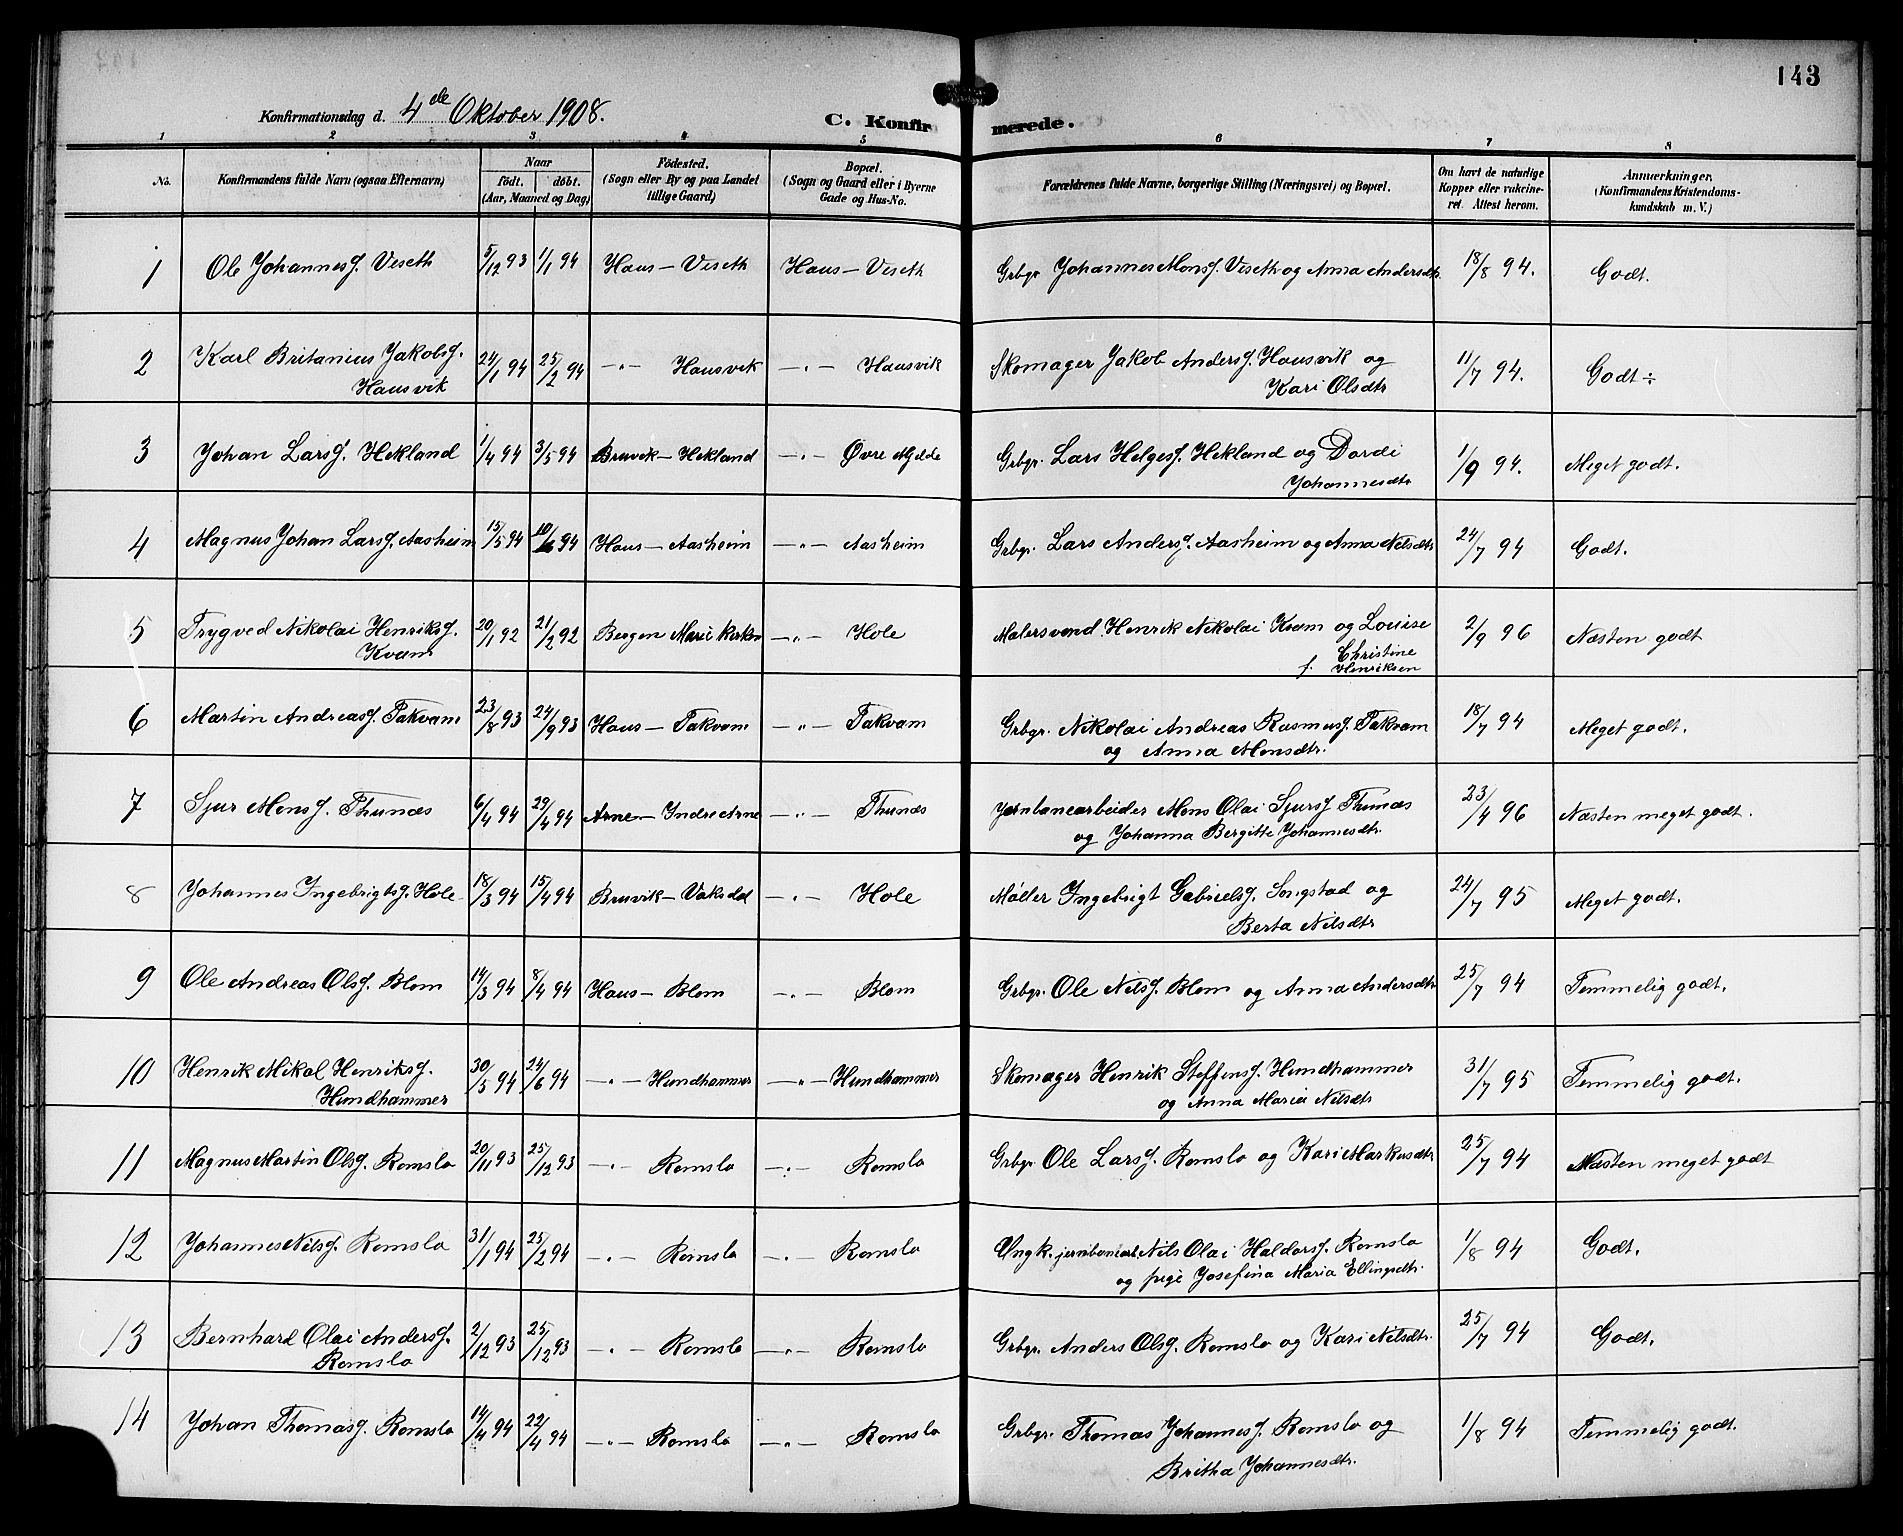 143
Konfirmationsdag d. 4de Oktober 1908. C. Konfirmerede.
1 2 3 4 5 6 7 8
No. Konfirmandens fulde Navn (ogsaa Efternavn) Naar født. døbt. (Aar, Maaned og Dag) Fødested. (Sogn eller By og paa Landet tillige Gaard) Bopæl. (Sogn og Gaard eller i Byerne Gade og Hus-No. Forældrenes fulde Navne, borgerlige Stilling (Næringsvei) og Bopæl. Om havt de naturlige Kopper eller vakcineret. Attest herom. Anmerkninger, (Konfirmandens Kristendomskundskab m. V.)
1 Ole Johannesf. Veseth 5/12 93 1/1 94 Haus – Veseth Haus – Veseth Grbgr. Johannes Monsf. Veseth og Anna Andersdtr 18/8 94. Godt.
2 Karl Britanius Jakobsf. 24/1 94 25/2 94 –"– Hausvik –"– Hausvik Skomager Jakob Andersf. Hausvik og 11/7 94. Godt ÷
Hausvik Kari Olsdtr
3 Johan Larsf. Hekland 1/4 94 3/5 94 Bruvik – Hekland –"– Øvre Mjelde Grbgr. Lars Helgesf. Hekland og Dordi 1/9 94. Meget godt.
Johannesdtr
4 Magnus Johan Larsf. Aasheim 15/5 94 10/6 94 Haus – Aasheim –"– Aasheim Grbgr. Lars Andersf. Aasheim og Anna Nilsdtr 24/7 94 Godt.
5 Trygved Nikolai Henriksf. 20/1 92 21/2 92 Bergen Marie kirken –"– Hole Malersvend Henrik Nikolai Kvam og Louise 2/9 96 Næsten godt
Kvam Christine
f. Henriksen
6 Martin Andreasf. Takvam 23/8 93 24/9 93 Haus – Takvam –"– Takvam Grbgr. Nikolai Andreas Rasmusf. Takvam 18/7 94 Meget godt.
og Anna Monsdtr.
7 Sjur Monsf. Thunæs 6/4 94 29/4 94 Arne – Indre Arne –"– Thunæs Jernbanearbeider Mons Olai Sjursf. Thunæs 23/4 96 Næsten meget godt.
og Johanna Bergitte Johannesdtr.
8 Johannes Ingebrigtsf. Hole 18/3 94 15/4 94 Bruvik – Vaksdal –"– Hole Møller Ingebrigt Gabrielsf. Songstad og 24/7 95 Meget godt.
Berta Nilsdtr
9 Ole Andreas Olsf. Blom 14/3 94 8/4 94 Haus – Blom –"– Blom Grbgr. Ole Nilsf. Blom og Anna Andersdtr 25/7 94 Temmelig godt.
10 Henrik Mikal Henriksf. 30/5 94 24/6 94 –"– Hundhammer –"– Hundhammer Skomager Henrik Steffensf. Hundhammer 31/7 95 Temmelig godt.
Hundhammer og Anna Maria Nilsdtr
11 Magnus Martin Olsf. Romslo 20/11 93 25/12 93 –"– Romslo –"– Romslo Grbgr. Ole Larsf. Romslo og Kari Markusdtr 25/7 94 Næsten meget godt
12 Johannes Nilsf. Romslo 31/1 94 25/2 94 –"– Romslo –"– Romslo Ungk. jernbanearb. Nils Olai Haldorsf. Romslo 1/8 94 Godt.
og pige Josefina Maria Ellingsdtr.
13 Bernhard Olai Andersf. 2/12 93 25/12 93 –"– Romslo –"– Romslo Grbgr. Anders Olsf. Romslo og Kari Nilsdtr. 25/7 94 Godt.
Romslo
14 Johan Thomasf. Romslo 14/4 94 22/4 94 –"– Romslo –"– Romslo Grbgr. Thomas Johannesf. Romslo og 1/8 94 Temmelig godt.
Britha Johannesdtr.